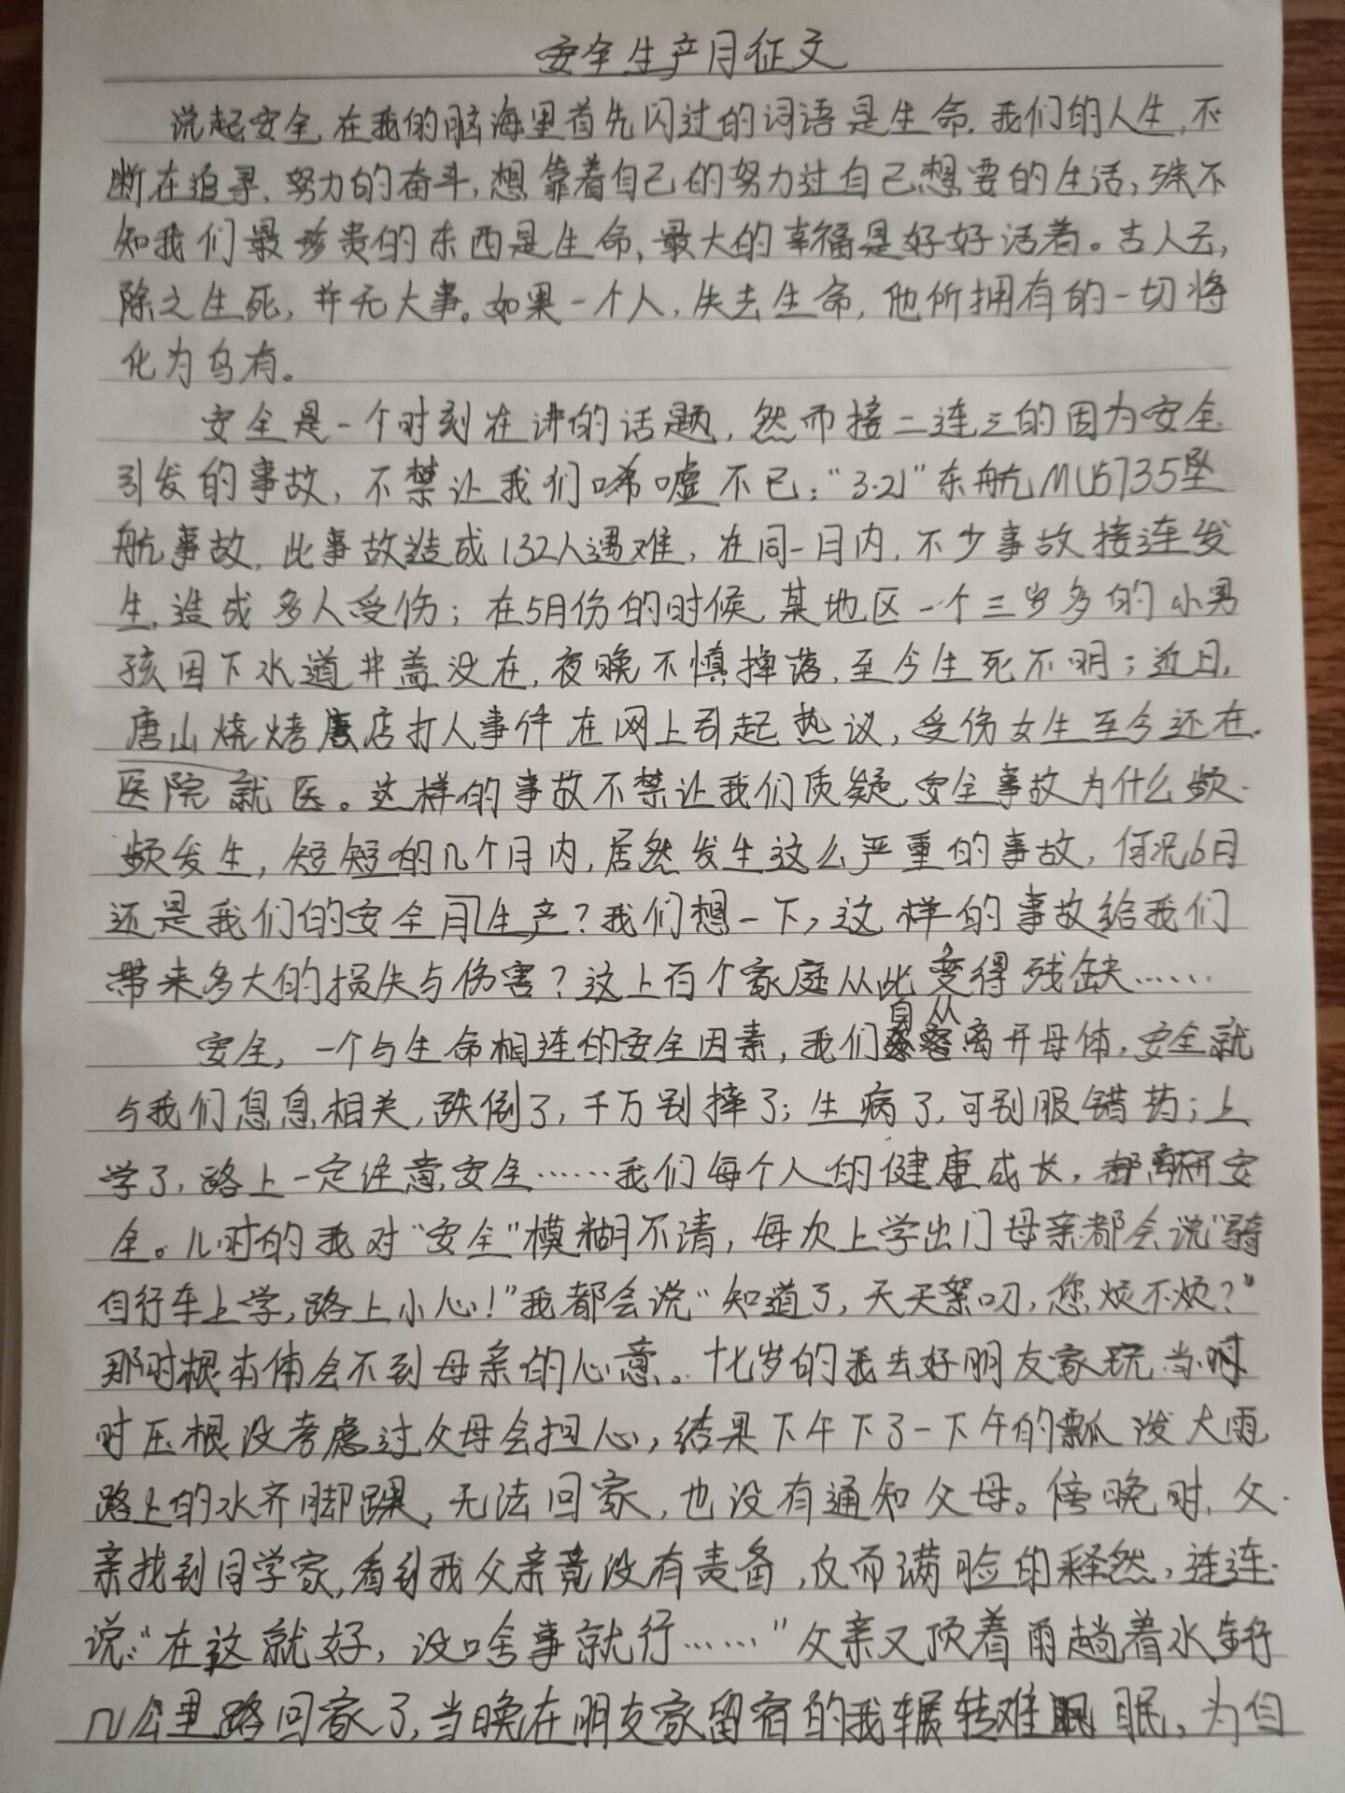 安全生产月征文
说起安全,在我的脑海里首先闪过的词语是生命,我们的人生,不
断在追寻,努力的奋斗,想靠着自己的努力过自己想要的生活,殊不
知我们最珍贵的东西是生命,最大的幸福是好好活着。古人云,
除之生死,并无大事。如果一个人,失去生命,他所拥有的一切将
化为乌有。
安全是一个时刻在讲的话题,然而接二连三的因为安全
引发的事故,不禁让我们唏嘘不已:“3·21”东航MU5735坠
航事故,此事故造成132人遇难,在同一月内,不少事故接连发
生,造成多人受伤;在5月份的时候,某地区一个三岁多的小男
孩因下水道井盖没在,夜晚不慎掉落,至今生死不明;近日,
唐山烧烤店打人事件在网上引起热议,受伤女生至今还在
医院就医。这样的事故不禁让我们质疑,安全事故为什么频
频发生,短短的几个月内,居然发生这么严重的事故,何况6月
还是我们的安全月生产?我们想一下,这样的事故给我们
带来多大的损失与伤害?这上百个家庭从此变得残缺……
安全,一个与生命相连的安全因素,我们自从离开母体,安全就
与我们息息相关,跌倒了,千万别摔了;生病了,可别服错药;上
学了,路上一定注意安全……我们每个人的健康成长,都离不开安
全。儿时的我对“安全”模糊不清,每次上学出门母亲都会说“骑
自行车上学,路上小心!”我都会说“知道了,天天絮叨,您烦不烦?”
那时根本体会不到母亲的心意。十七岁的我去好朋友家玩,当
时压根没考虑过父母会担心,结果下午下了一下午的瓢泼大雨
路上的水齐脚踝,无法回家,也没有通知父母。傍晚时,父
亲找到同学家,看到我父亲竟没有责备,反而满脸的释然,连连
说:“在这就好,没啥事就行……”父亲又顶着雨趟着水步行
几公里路回家了,当晚在朋友家留宿的我辗转难眠,为自